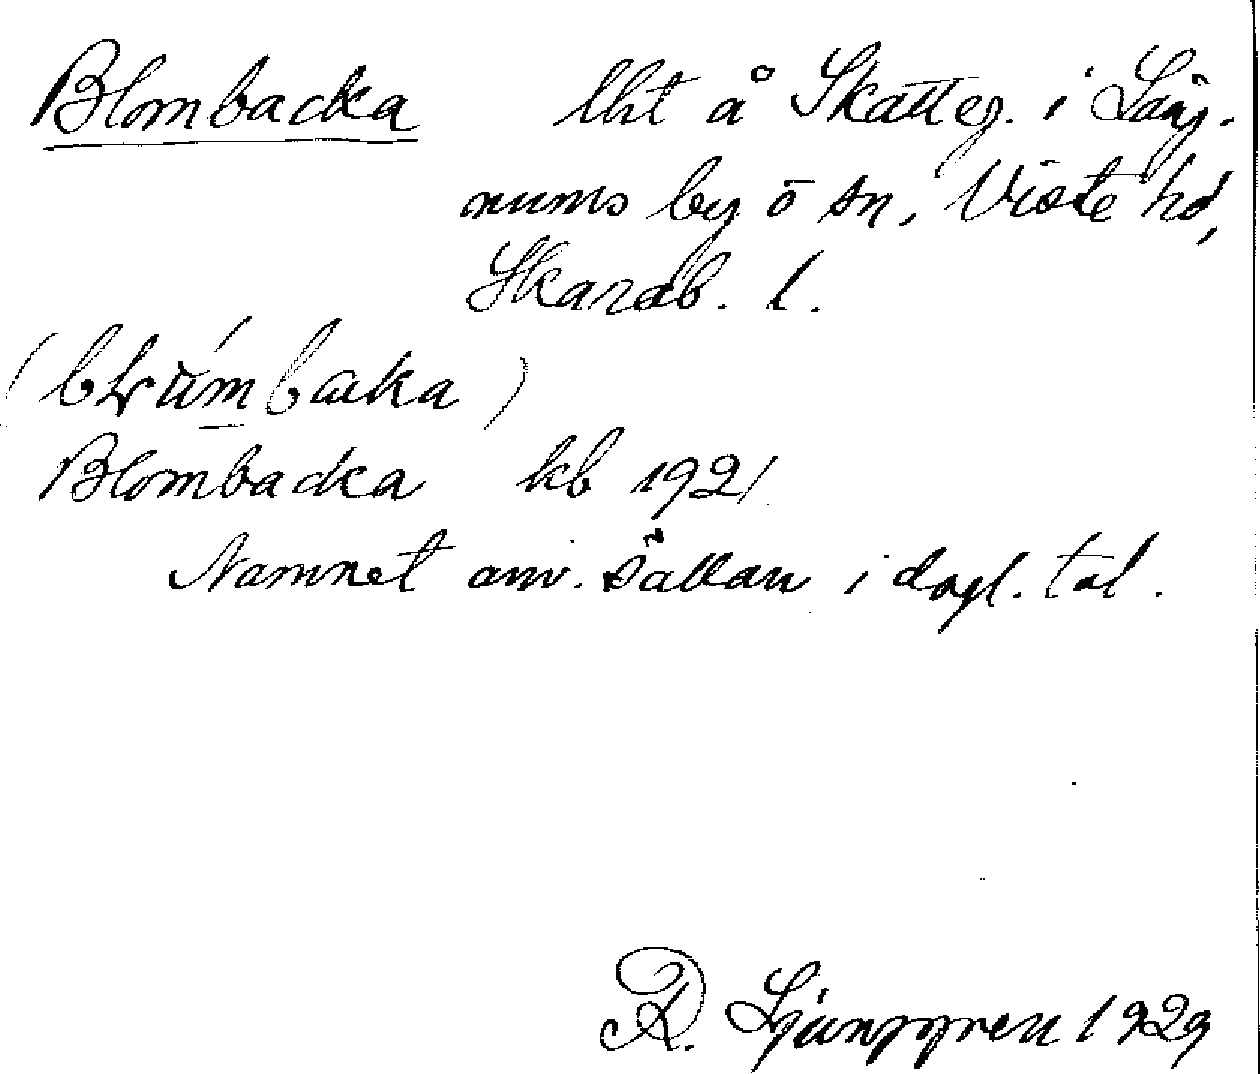 Blombacka lht å Skatteg. i Läng-
nums by o sn, Viste hd,
Skarab. l.
(blUmbaka)
Blombacka kb 1921
Namnet anv. sällan i dagl. tal.
R. Ljunggren 1929